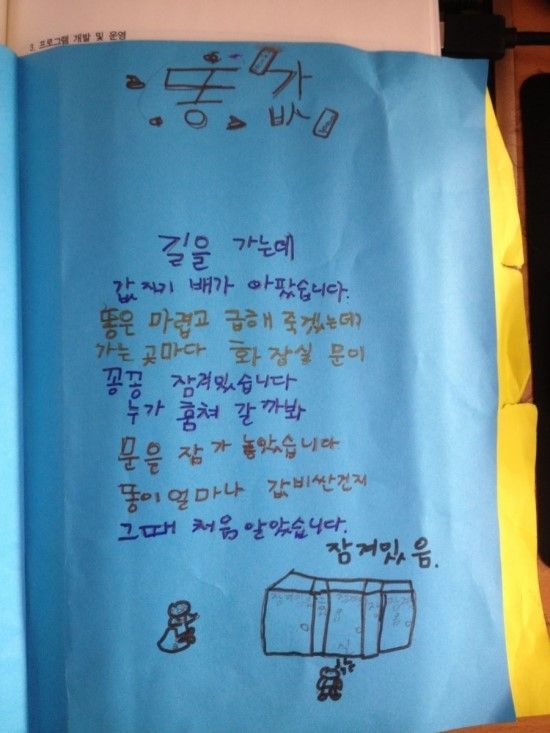 3. 프로그램 개발 및 운영
똥 값
길을 가는데
갑자기 배가 아팠습니다.
똥은 마렵고 급해 죽겠는데
가는 곳마다 화장실 문이
꽁꽁 잠겨있습니다
누가 훔쳐 갈까봐
문을 잠가 놓았습니다
똥이 얼마나 값비싼건지
그때 처음 알았습니다.
잠겨있음.